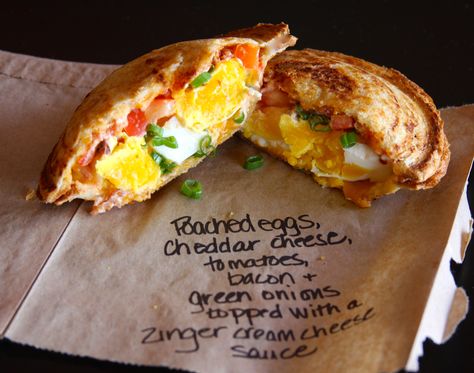 Poached eggs,
cheddar cheese,
tomatoes,
bacon +
green onions
topped with a
zinger cream cheese
sauce